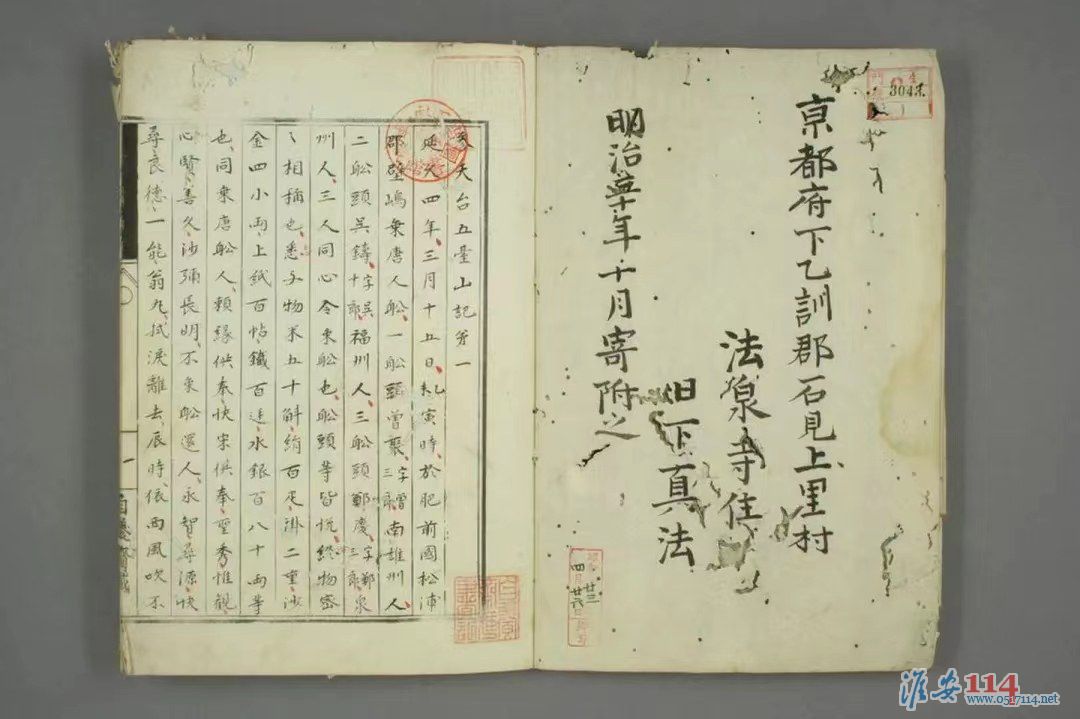 京都府下乙訓郡石見上里村
法泉寺住
日下真法
明治卅年十月寄附之
3043
廿三
四月廿六日
参天台五臺山記第一
延久四年三月十五日乙寅時於肥前國松浦
郡壁嶋乗唐人舩一舩頭曽聚字曽三郎南雄州人
二舩頭呉鑄字呉十郎福州人三舩頭鄭慶字鄭三郎泉
州人三人同心令乗舩也舩頭等皆悦給物密
〻相稱也悉与物米五十斛絹百疋褂二重沙
金四小両上紙百帖鐵百廷水銀百八十両等
也同乗唐舩人頼縁供奉快宗供奉聖秀惟観
心賢善久沙弥長明不乗舩還人永智尋源快
尋良徳一能翁丸拭淚離去辰時依西風吹不
淮安114
www.0517114.net